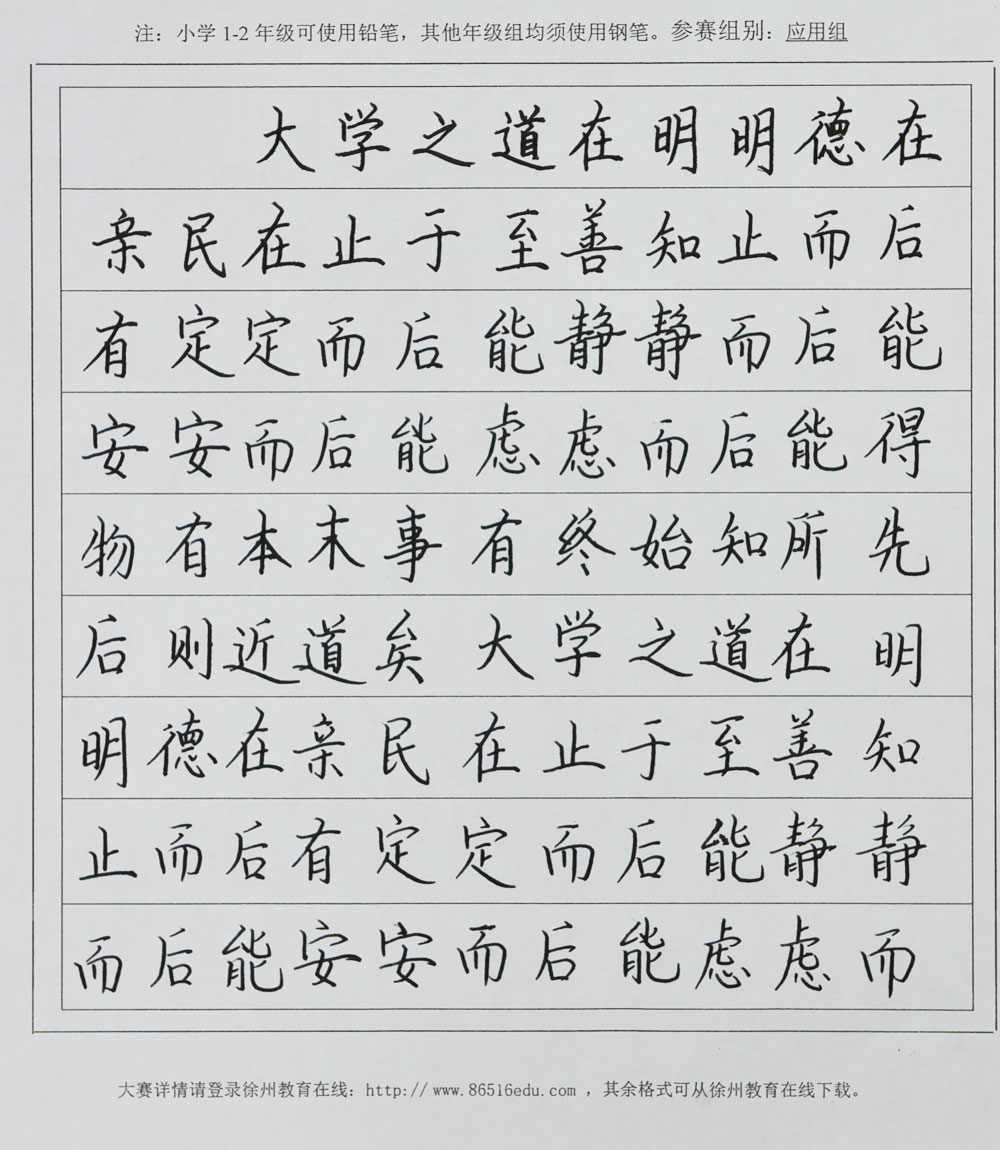 注：小学 1-2 年级可使用铅笔，其他年级组均须使用钢笔。参赛组别：应用组
大学之道在明明德在
亲民在止于至善知止而后
有定定而后能静静而后能
安安而后能虑虑而后能得
物有本末事有终始知所先
后则近道矣大学之道在明
明德在亲民在止于至善知
止而后有定定而后能静静
而后能安安而后能虑虑而
大赛详情请登录徐州教育在线：http://www.86516edu.com ，其余格式可从徐州教育在线下载。